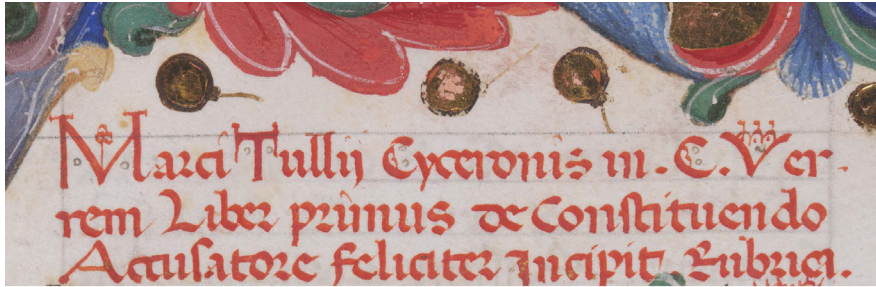 Marci Tullij Cyceronis in . C. Ver-
rem Liber primus de Constituendo
Accusatore feliciter Incipit. Rubrica.